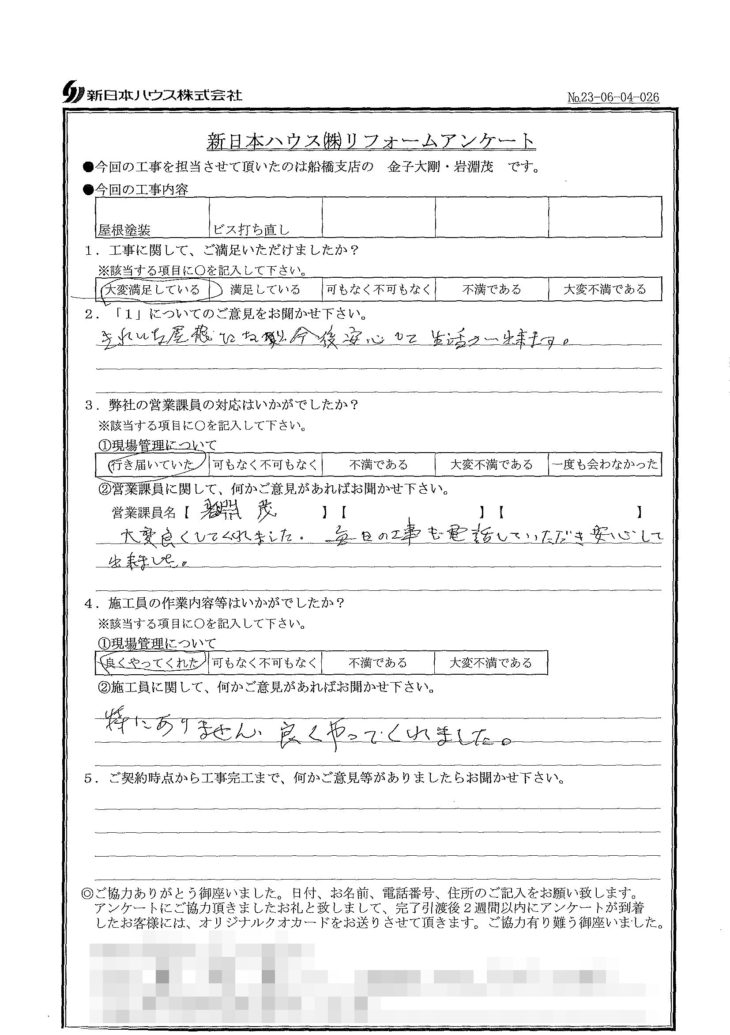 新日本ハウス株式会社
№23-06-04-026
新日本ハウス㈱リフォームアンケート
●今回の工事を担当させて頂いたのは船橋支店の　金子大剛・岩淵茂　です。
●今回の工事内容
屋根塗装　ビス打ち直し
１．工事に関して、ご満足いただけましたか？
※該当する項目に○を記入して下さい。
大変満足している　満足している　可もなく不可もなく　不満である　大変不満である
２．「１」についてのご意見をお聞かせ下さい。
きれいな屋根になり今後安心して生活が出来ます。
３．弊社の営業課員の対応はいかがでしたか？
※該当する項目に○を記入して下さい。
①現場管理について
行き届いていた　可もなく不可もなく　不満である　大変不満である　一度も会わなかった
②営業課員に関して、何かご意見があればお聞かせ下さい。
営業課員名【　岩淵　茂　】【　】【　】
大変良くしてくれました。毎日の工事も電話していただき安心して
出来ました。
４．施工員の作業内容等はいかがでしたか？
※該当する項目に○を記入して下さい。
①現場管理について
良くやってくれた　可もなく不可もなく　不満である　大変不満である
②施工員に関して、何かご意見があればお聞かせ下さい。
特にありません、良くやってくれました。
５．ご契約時点から工事完工まで、何かご意見等がありましたらお聞かせ下さい。
◎ご協力ありがとう御座いました。日付、お名前、電話番号、住所のご記入をお願い致します。
アンケートにご協力頂きましたお礼と致しまして、完了引渡後２週間以内にアンケートが到着
したお客様には、オリジナルクオカードをお送りさせて頂きます。ご協力有り難う御座いました。